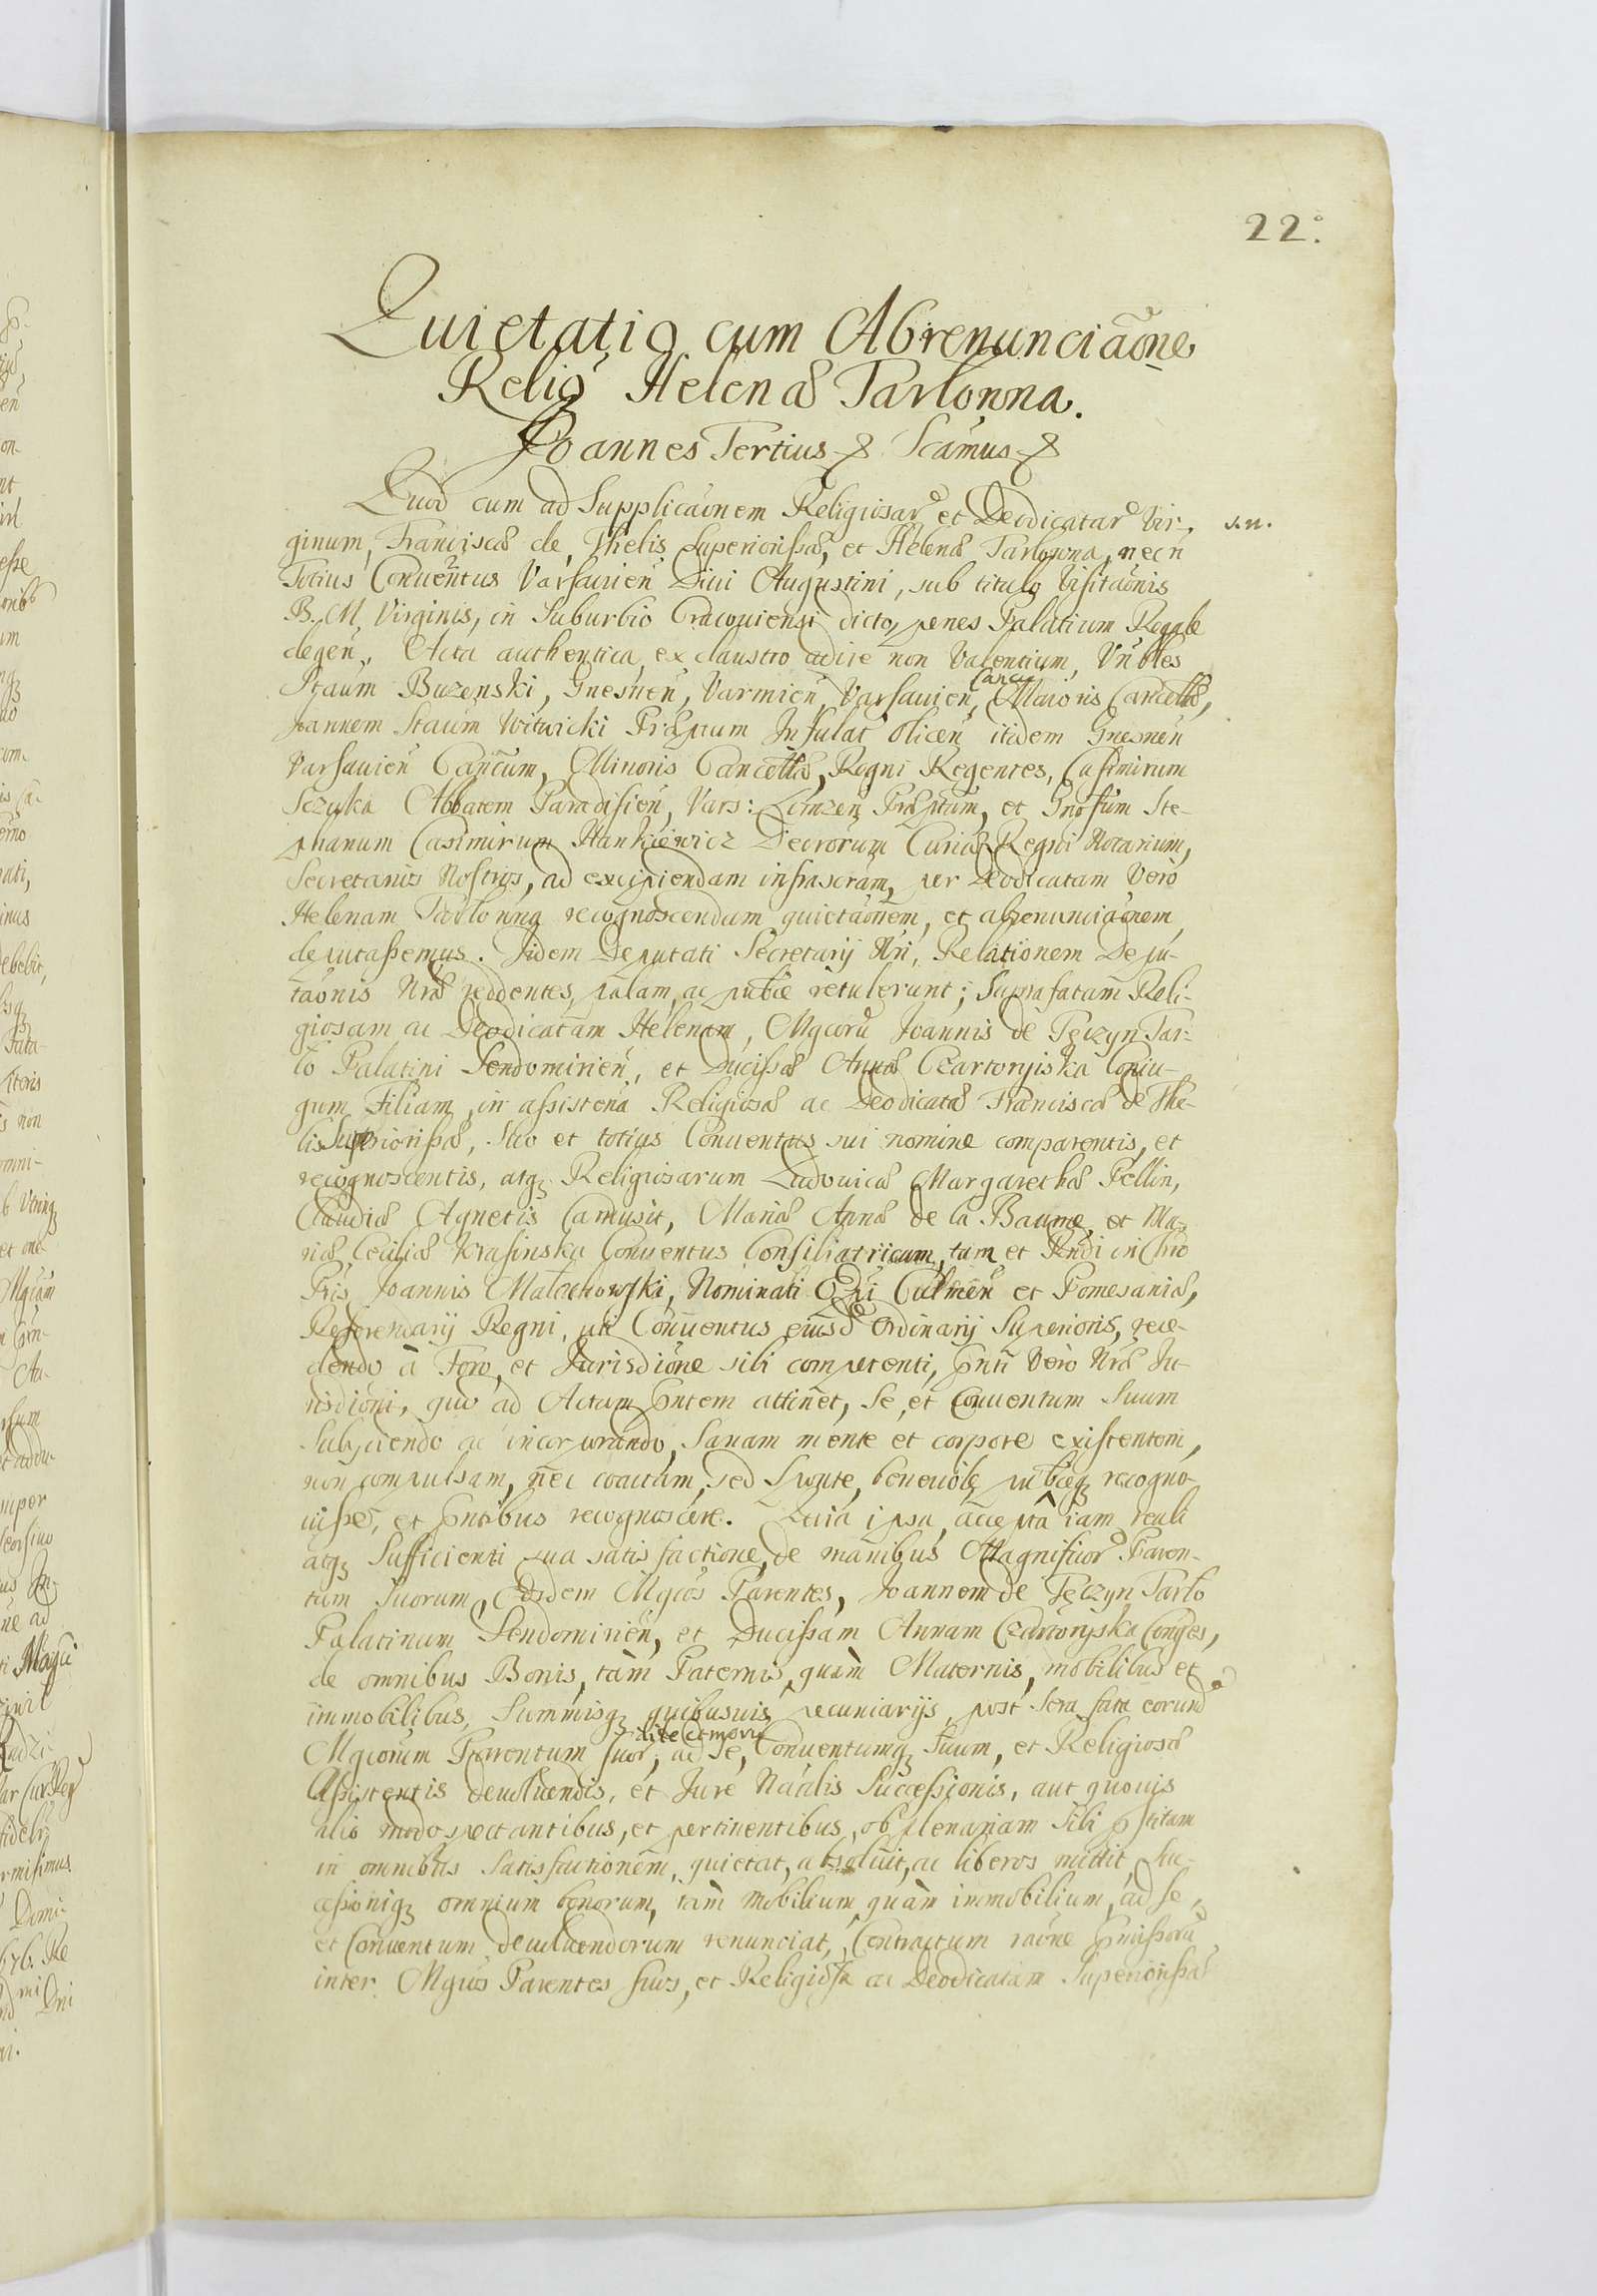 22.
Quietatio cum Abrenunciaõne
Relig: Helenæ Tarlonna.
Joannes Tertius Scamus
Quod cum ad Supplicaõnem Religiosar et Deodicatar Vir-
ginum, Franciscæ de Thelis Superiorissæ, et Helenæ Tarlonna, necn̄
Totius Conventus Varsavien̄ Divi Augustini, sub titulo Visitaõnis
B. M. Virginis, in Suburbio Cracoviensi dicto, penes Palatium Regale
degen̄, Acta authentica ex claustro adire non Valentium, Vn̄bles
Sta͞um Buzenski, Gnesnen̄, Varmien̄, Varsavien̄ Canc Maioris Cancellæ,
Joannem Sta͞um Witwicki Præptum Infulat Olicen̄ itidem Gnesnen̄
Varsavien̄ Can̄cum, Minoris Cancellæ, Regni Regentes, Casimirum
Sczuka Abbatem Paradisien̄, Vars: Lomzen̄ Præptum, et Gnosum Ste-
phanum Casimirum Hankiewicz Decrorum Curiæ Regni Notarium,
Secretarios Nostros, ad excipiendam infrascram, per Deodicatam Vero
Helenam Tarlonna recognoscendam quietaõnem, et abrenunciaõnem
deputassemus. Iidem Deputati Secretarij Nri, Relationem Depu-
taõnis Nræ reddentes, palam, ac publice retulerunt; Suprafatam Reli-
giosam ac Deodicatam Helenam, Mgcoru Joannis de Tęczyn Tar-
lo Palatini Sendomirien̄, et Ducissæ Annæ Czartoryiska Coniu-
gum Filiam, in assistena Religiosæ ac Deodicatæ Franciscæ de The-
lis Superiorissæ, Suo et totius Conventus sui nomine comparentis, et
recognoscentis, atq Religiosarum Ludovicæ Margarethæ Pellin,
Claudiæ Agnetis Camusit, Mariæ Annæ de la Baume, et Ma-
riæ Ceciliæ Krasinska Conventus Consiliatricum, tum et Rndi in Chro
Pris Joannis Małachowski, Nominati Epi Culmen̄ et Pomesaniæ,
Referendarij Regni, uti Conventus eiusd Ordinarij Superioris, rece-
dendo à Foro, et Jurisdione sibi competenti, pnti Vero Nræ Ju-
risdioni, quo ad Actum pntem attinet, Se, et Conventum Suum
Subjiciendo ac incorporando, Sanam mente et corpore existentem,
non compulsam, nec coactam, sed Sponte, benevole, publiceq recogno-
visse, et pntibus recognoscere. Quia ipsa, accepta iam reali
atq Sufficienti sua satisfactione, de manibus Magnificor Paren-
tum Suorum, Eosdem Mgcos Parentes, Joannem de Tęczyn Tarlo
Palatinum Sendomirien̄, et Ducissam Annam Czartoryska Coniges,
de omnibus Bonis, tàm Paternis, quàm Maternis, mobilibus et
immobilibus, Summisq quibusvis pecuniarijs, post Sera fata eorund
Mgcorum Parentum suor, ad se, Conventumq Suum, et Religiosæ
Assistentis devolvendis, et Jure Nālis Successionis, aut quovis
alio modo spectantibus, et pertinentibus, ob plenariam Sibi pstitam
in omnibus Satisfactionem, quietat, absolvit, ac liberos mittit, Suc-
cessioniq omnium bonorum, tàm mobilium, quàm immobilium, ad se,
et Conventum devolvendorum renunciat, Contractum raõne pmissoru
inter Mgcos Parentes suos, et Religiosæ ac Deodicatam Superiorissæ